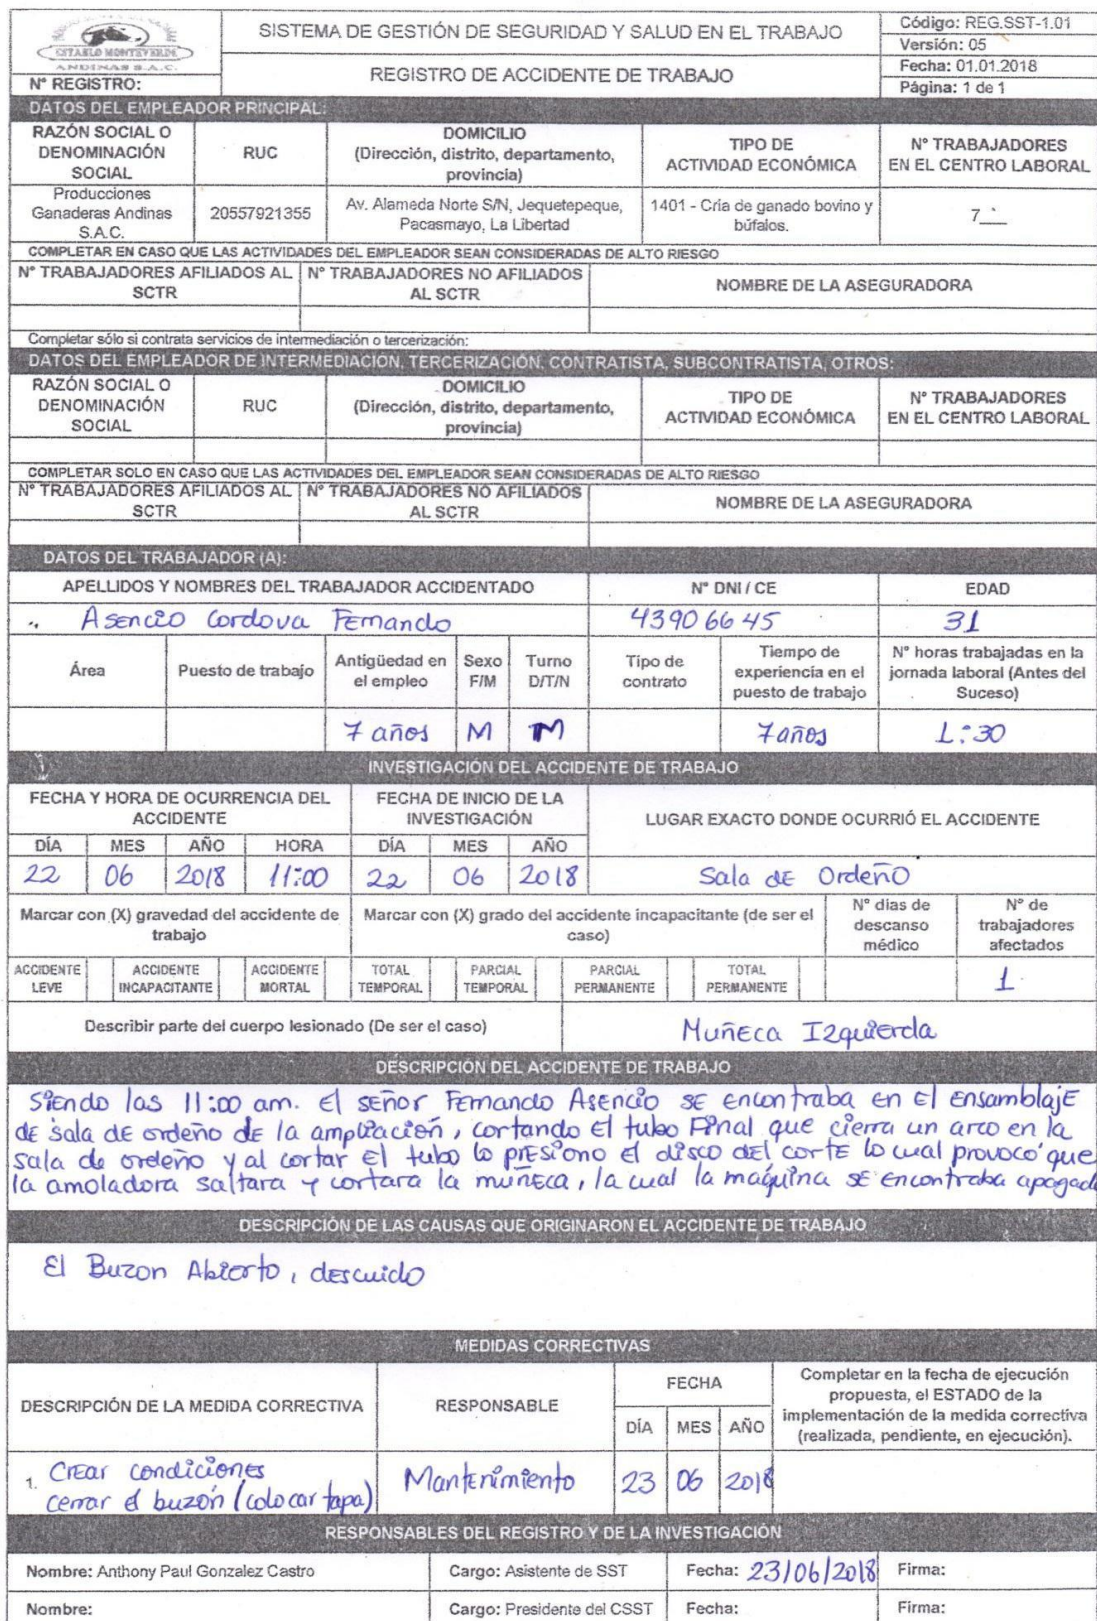 ESTABLO MONTEVERDE
ANDINAS S.A.C.
N° REGISTRO:
SISTEMA DE GESTIÓN DE SEGURIDAD Y SALUD EN EL TRABAJO
REGISTRO DE ACCIDENTE DE TRABAJO
Código: REG.SST-1.01
Versión: 05
Fecha: 01.01.2018
Página: 1 de 1
DATOS DEL EMPLEADOR PRINCIPAL:
RAZÓN SOCIAL O DENOMINACIÓN SOCIAL
RUC
DOMICILIO (Dirección, distrito, departamento, provincia)
TIPO DE ACTIVIDAD ECONÓMICA
N° TRABAJADORES EN EL CENTRO LABORAL
Producciones Ganaderas Andinas S.A.C.
20557921355
Av. Alameda Norte S/N, Jequetepeque, Pacasmayo, La Libertad
1401 - Cría de ganado bovino y búfalos.
7__
COMPLETAR EN CASO QUE LAS ACTIVIDADES DEL EMPLEADOR SEAN CONSIDERADAS DE ALTO RIESGO
N° TRABAJADORES AFILIADOS AL SCTR
N° TRABAJADORES NO AFILIADOS AL SCTR
NOMBRE DE LA ASEGURADORA
Completar sólo si contrata servicios de intermediación o tercerización:
DATOS DEL EMPLEADOR DE INTERMEDIACIÓN, TERCERIZACIÓN, CONTRATISTA, SUBCONTRATISTA, OTROS:
RAZÓN SOCIAL O DENOMINACIÓN SOCIAL
RUC
DOMICILIO (Dirección, distrito, departamento, provincia)
TIPO DE ACTIVIDAD ECONÓMICA
N° TRABAJADORES EN EL CENTRO LABORAL
COMPLETAR SOLO EN CASO QUE LAS ACTIVIDADES DEL EMPLEADOR SEAN CONSIDERADAS DE ALTO RIESGO
N° TRABAJADORES AFILIADOS AL SCTR
N° TRABAJADORES NO AFILIADOS AL SCTR
NOMBRE DE LA ASEGURADORA
DATOS DEL TRABAJADOR (A):
APELLIDOS Y NOMBRES DEL TRABAJADOR ACCIDENTADO
N° DNI / CE
EDAD
Asencio Cordova Fernando
43906645
31
Área
Puesto de trabajo
Antigüedad en el empleo
Sexo F/M
Turno D/T/N
Tipo de contrato
Tiempo de experiencia en el puesto de trabajo
N° horas trabajadas en la jornada laboral (Antes del Suceso)
7 años
M
M
7 años
1:30
INVESTIGACIÓN DEL ACCIDENTE DE TRABAJO
FECHA Y HORA DE OCURRENCIA DEL ACCIDENTE
FECHA DE INICIO DE LA INVESTIGACIÓN
LUGAR EXACTO DONDE OCURRIÓ EL ACCIDENTE
DÍA MES AÑO HORA
DÍA MES AÑO
22 06 2018 11:00
22 06 2018
Sala de Ordeño
Marcar con (X) gravedad del accidente de trabajo
Marcar con (X) grado del accidente incapacitante (de ser el caso)
N° dias de descanso médico
N° de trabajadores afectados
ACCIDENTE LEVE
ACCIDENTE INCAPACITANTE
ACCIDENTE MORTAL
TOTAL TEMPORAL
PARCIAL TEMPORAL
PARCIAL PERMANENTE
TOTAL PERMANENTE
1
Describir parte del cuerpo lesionado (De ser el caso)
Muñeca Izquierda
DESCRIPCIÓN DEL ACCIDENTE DE TRABAJO
Siendo las 11:00 am. El señor Fernando Asencio se encontraba en el ensamblaje
de sala de ordeño de la ampliación, cortando el tubo Final que cierra un arco en la
sala de ordeño y al cortar el tubo lo presiono el disco del corte lo cual provocó que
la amoladora saltara y cortara la muñeca, la cual la maquina se encontraba apagada
DESCRIPCIÓN DE LAS CAUSAS QUE ORIGINARON EL ACCIDENTE DE TRABAJO
El Buzon Abierto, descuido
MEDIDAS CORRECTIVAS
DESCRIPCIÓN DE LA MEDIDA CORRECTIVA
RESPONSABLE
FECHA
DÍA MES AÑO
Completar en la fecha de ejecución propuesta, el ESTADO de la implementación de la medida correctiva (realizada, pendiente, en ejecución).
1. Crear condiciones
cerrar el buzón (colocar tapa)
Mantenimiento
23 06 2018
RESPONSABLES DEL REGISTRO Y DE LA INVESTIGACIÓN
Nombre: Anthony Paul Gonzalez Castro
Cargo: Asistente de SST
Fecha: 23/06/2018
Firma:
Nombre:
Cargo: Presidente del CSST
Fecha:
Firma: